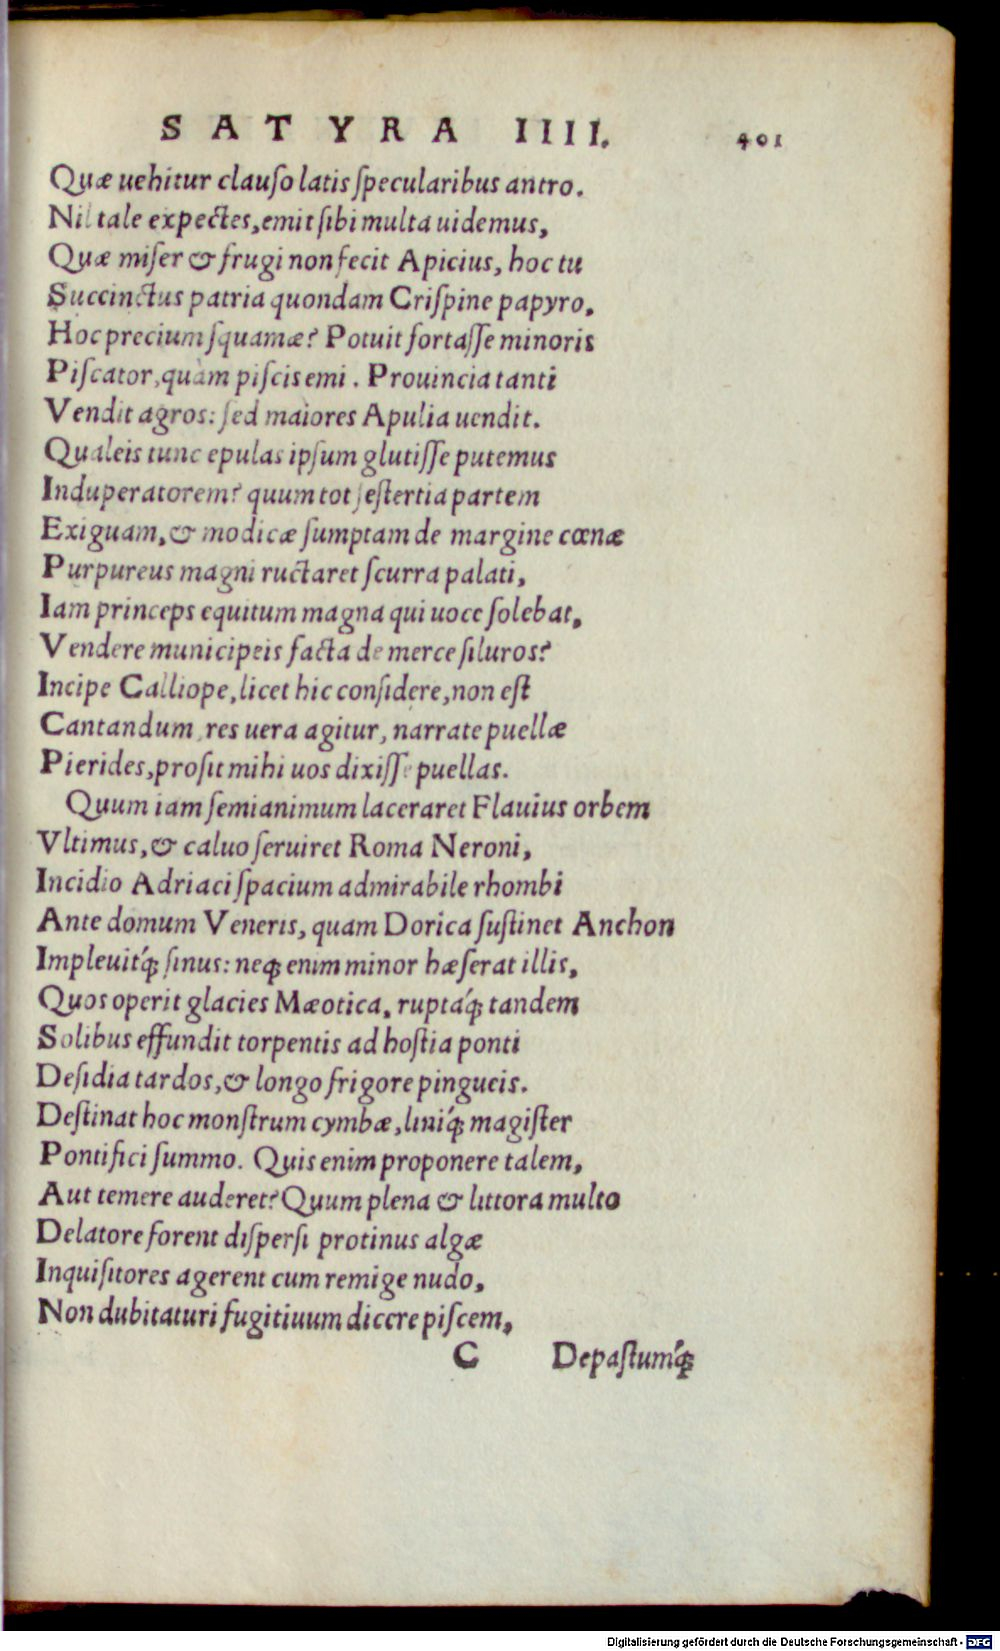 SATYRA IIII. 401
Quæ uehitur clauso latis specularibus antro.
Nil tale expectes, emit sibi multa uidemus,
Quæ miser & frugi non fecit Apicius, hoc tu
Succinctus patria quondam Crispine papyro.
Hoc precium squamæ? Potuit fortasse minoris
Piscator, quàm piscis emi. Prouincia tanti
Vendit agros: sed maiores Apulia uendit.
Qualeis tunc epulas ipsum glutisse putemus
Induperatorem? quum tot sestertia partem
Exiguam, & modicæ sumptam de margine cœnæ
Purpureus magni ructaret scurra palati,
Iam princeps equitum magna qui uoce solebat,
Vendere municipeis facta de merce siluros?
Incipe Calliope, licet hic considere, non est
Cantandum, res uera agitur, narrate puellæ
Pierides, prosit mihi uos dixisse puellas.
Quum iam semianimum laceraret Flauius orbem
Vltimus, & caluo seruiret Roma Neroni,
Incidio Adriaci spacium admirabile rhombi
Ante domum Veneris, quam Dorica sustinet Anchon
Impleuitq́; sinus: neq; enim minor hæserat illis,
Quos operit glacies Mæotica, ruptáq; tandem
Solibus effundit torpentis ad hostia ponti
Desidia tardos, & longo frigore pingueis.
Destinat hoc monstrum cymbæ, liniq́; magister
Pontifici summo. Quis enim proponere talem,
Aut temere auderet? Quum plena & littora multo
Delatore forent dispersi protinus algæ
Inquisitores agerent cum remige nudo,
Non dubitaturi fugitiuum diccre piscem,
C Depastumq́;
Digitalisierung gefördert durch die Deutsche Forschungsgemeinschaft - DFG